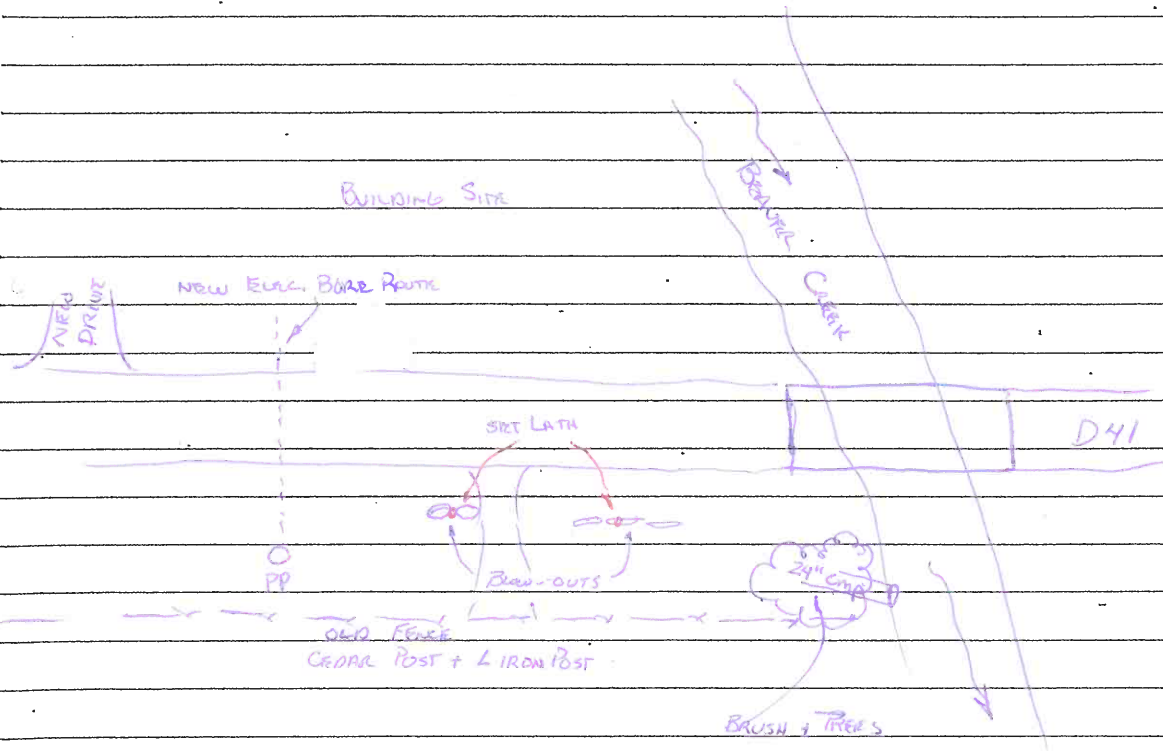 BUILDING SITE
BEAVER
CREEK
NEW ELEC. BORE ROUTE
NEW
DRIVE
SET LATH
D41
PP
BLOW-OUTS
24" CMP
OLD FENCE
CEDAR POST + L IRON POST
BRUSH + TREES